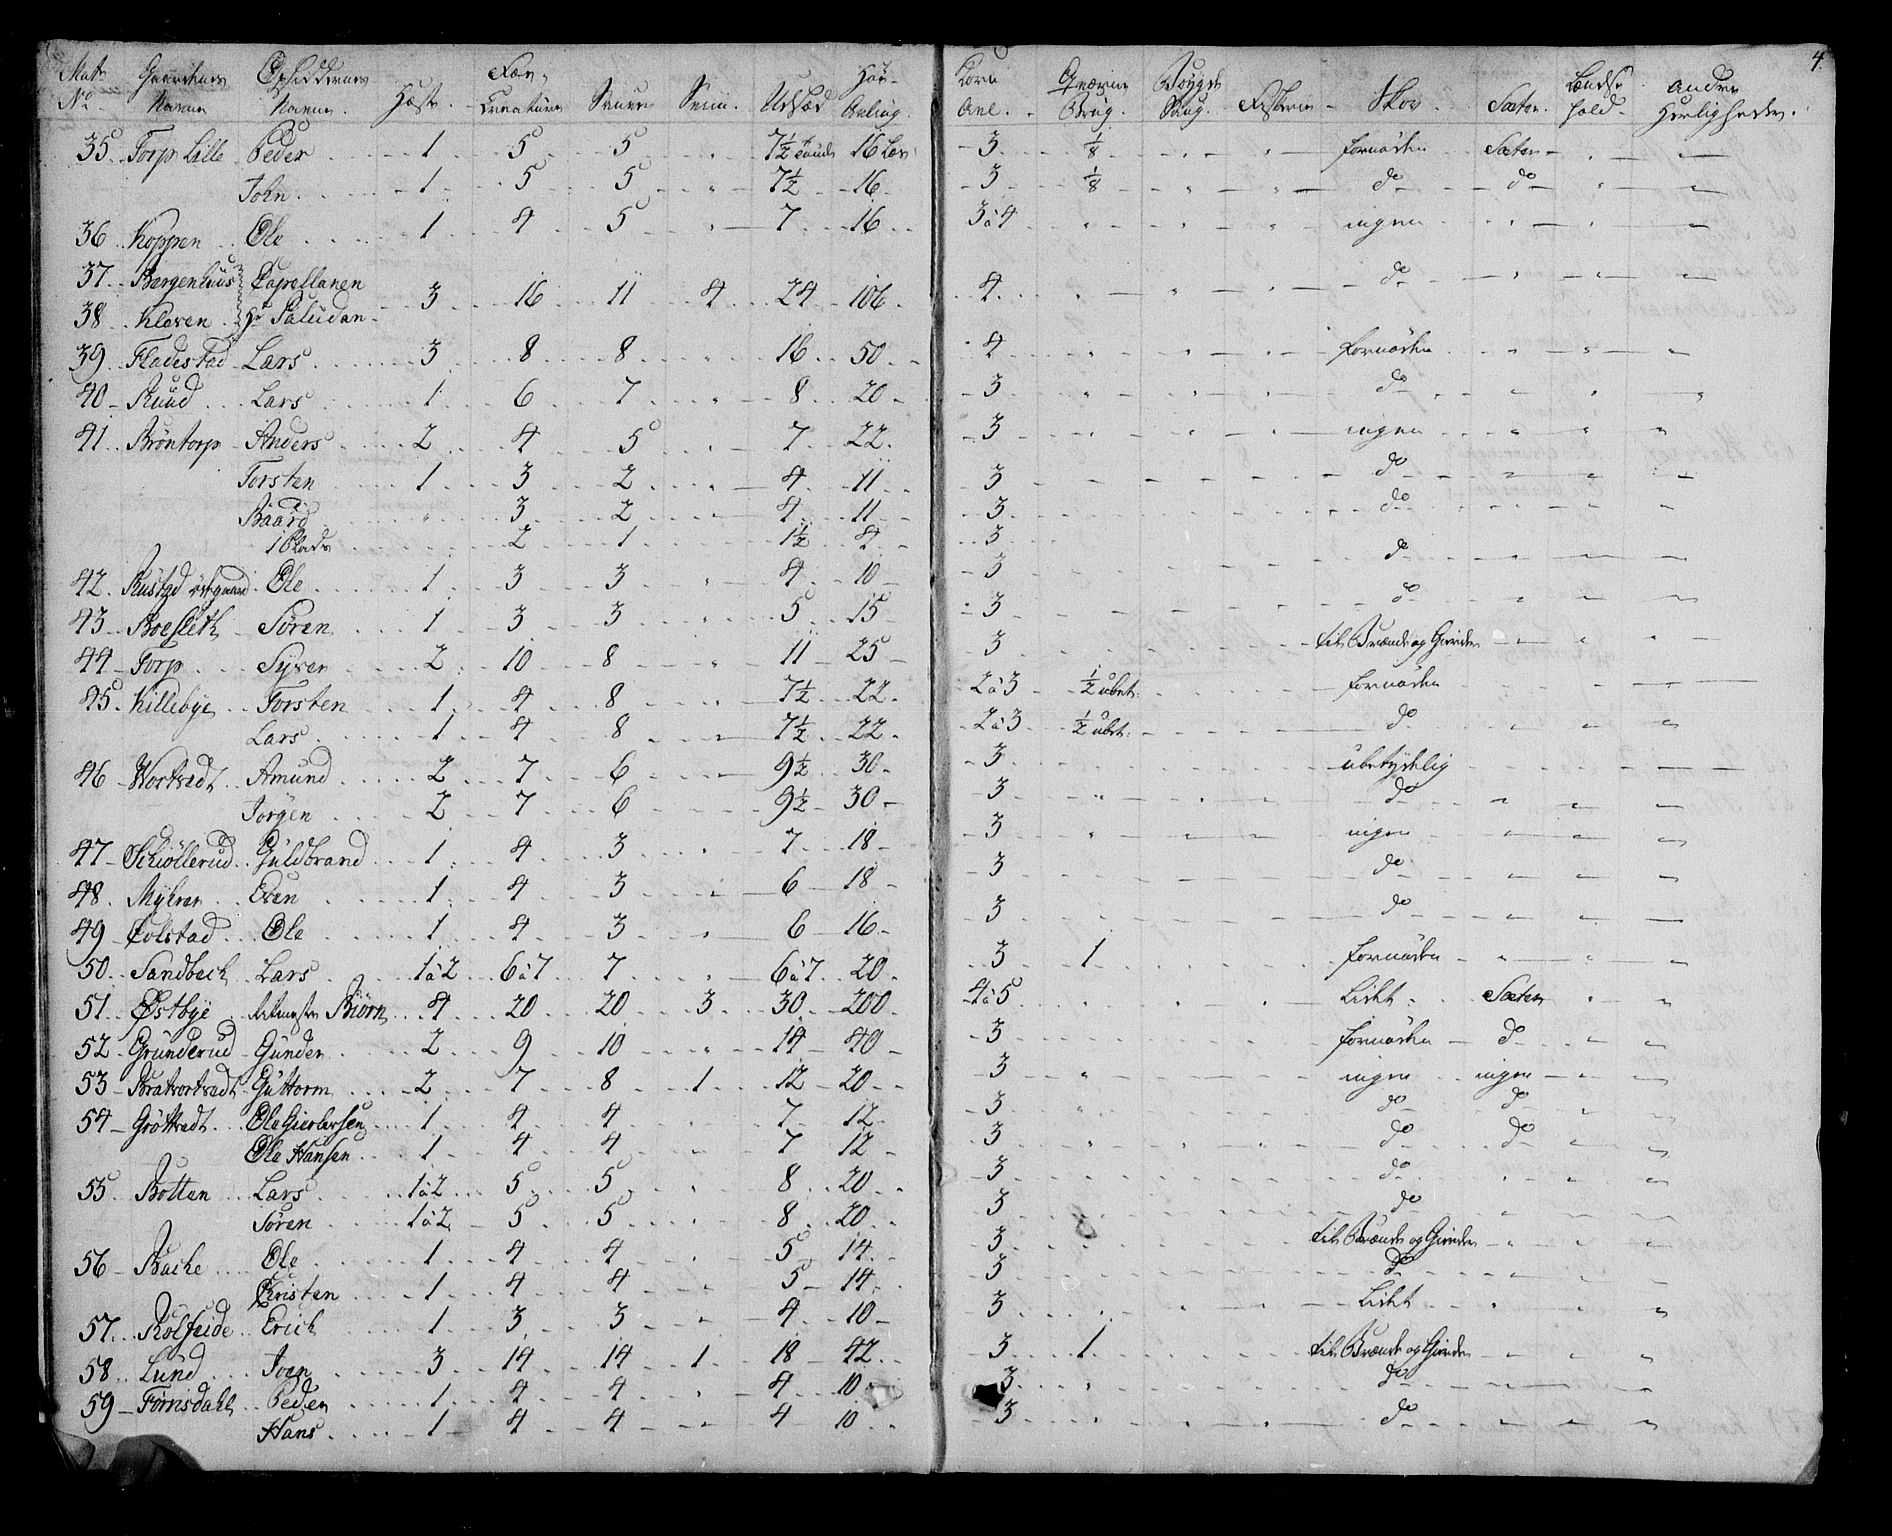 4.
Matr No Gaardenes Navne Opsiddernes Navne. Hæste. Fæe Creature Sauer Sviin. Udsæd Høe- Avling. Korn Avl. Qværne Brug. Bøygde Saug. Fiskerie Skov. Sæter. Lændse hold. Andre Herligheder.
35 Torp Lille Peder 1 5 5 " 7½ Tønde 16 Læs 3 ⅛ " " fornøden Sæter " "
John 1 5 5 " 7½ 16 3 ⅛ " " do do " "
36 Koppen Ole 1 4 5 " 7 16 3 à 4 " " " ingen " " "
37 Borgenhuus Capellanen
38 Kloven Hr Paludan 3 16 11 4 24 106 4 " " " do " " "
39 Fladestad Lars 3 8 8 " 16 50 4 " " " fornøden " " "
40 Ruud Lars 1 6 7 " 8 20 3 " " " do " " "
41 Brøntorp Anders 2 4 5 " 7 22 3 " " " ingen " " "
Torsten 1 3 2 " 4 11 3 do " " "
Baard " 3 2 " 4 11 3 do " " "
1 Plads 2 1 1½ 4 3
42 Rustad østgaard Ole 1 3 3 " 4 10 3 do " " "
43 Boesleth Søren 1 3 3 " 5 15 3 do " " "
44 Torp Syver 2 10 8 " 11 25 3 til Brænde og Gierder " " "
45 Killebye Torsten 1 4 8 " 7½ 22 2 à 3 ½ ubet: fornøden
Lars 1 4 8 7½ 22 2 à 3 ½ ubet: do " " "
46 Vortvedt Amund 2 7 6 9½ 30 3 ubetydelig
Jørgen 2 7 6 9½ 30 3 " " " do " " "
47 Schiøllerud Guldbrand 1 4 3 " 7 18 3 " " " ingen " " "
48 Myhrer Even 1 4 3 " 6 18 3 do " " "
49 Colstad Ole 1 4 3 " 6 16 3 do " " "
50 Sandbech Lars 1 à 2 6 à 7 7 " 6 à 7 20 3 1 fornøden " " "
51 Østbye Ritmester Biørn 4 20 20 3 30 200 4 à 5 " " " Lidt Sæter " "
52 Grunderud Gunder 2 9 10 " 14 40 3 fornøden do " "
53 Bratvortvedt Guttorm 2 7 8 1 12 20 3 " ingen ingen " "
54 Grøttvedt Ole Gierlersen 1 4 4 7 12 3 " do do " "
Ole Hansen 1 4 4 " 7 12 3 " " " do do " "
55 Botten Lars 1 à 2 5 5 " 8 20 3 do " " "
Søren 1 à 2 5 5 " 8 20 3 do " " "
56 Bache Ole 1 4 4 " 5 14 3 til Brænde og Gierder " " "
Kristen 1 4 4 5 14 3 do " " "
57 Rolfseide Erich 1 3 3 " 4 10 3 " " " Lidt " " "
58 Lund Joen 3 14 14 1 18 42 3 1 til Brænde og Gierder " " "
59 Tømsdahl Peder 1 4 4 " 4 10 3 " do " " "
Hans 1 4 4 " 4 10 3 " " " do " " "